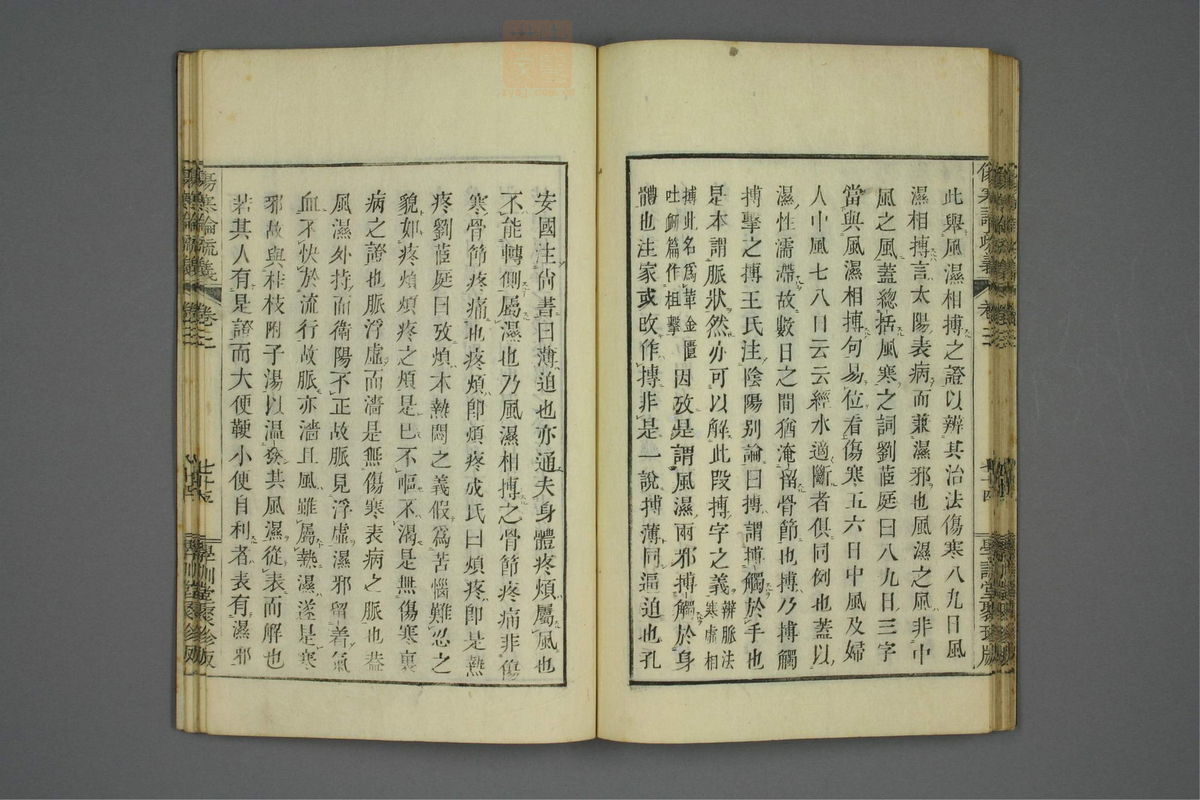 此擧風濕相搏之證以辨其治法傷寒八九日風
濕相搏言太陽表病而兼濕邪也風濕之風非中
風之風蓋總括風寒之詞劉茝庭曰八九日三字
當與風濕相摶句易位看傷寒五六日中風及婦
人中風七八日云云經水適斷者俱同例也蓋以
濕性濡滯故數日之間猶淹留骨節也搏乃搏觸
搏擊之搏王氏注陰陽别論曰搏謂搏觸於手也
是本謂脈狀然亦可以解此段搏字之義辨脈法寒虛相
搏此名爲革金匱吐衄篇作相擊因攷是謂風濕兩邪搏觸於身
體也注家或改作摶非是一說搏薄同逼迫也孔
安國注尚書曰薄迫也亦通夫身體疼煩屬風也
不能轉側屬濕也乃風濕相搏之骨節疼痛非傷
寒骨節疼痛也疼煩卽煩疼成氏曰煩疼卽是熱
疼劉茝庭曰攷煩本熱悶之義假爲苦惱難忍之
貌如疼煩煩疼之煩是已不嘔不渴是無傷寒裏
病之證也脈浮虛而濇是無傷寒表病之脈也蓋
風濕外持而衛陽不正故脈見浮虛濕邪留着氣
血不快於流行故脈亦濇且風雖屬熱濕遂是寒
邪故與桂枝附子湯以温發其風濕從表而解也
若其人有是證而大便鞕小便自利者表有濕邪
傷寒論疏義
卷二
七十四
學訓堂聚珍版
傷寒論疏義
卷二
學訓堂聚珍版